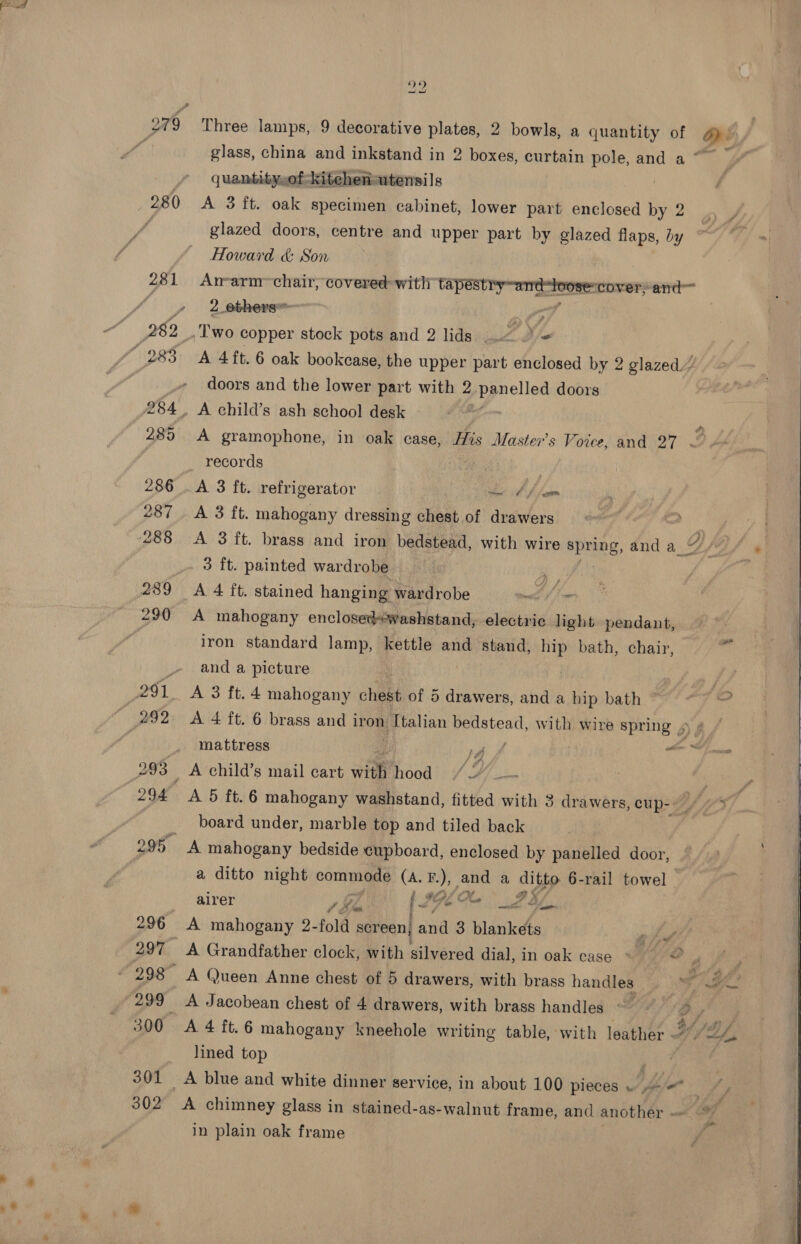 22
279 Three lamps, 9 decorative plates, 2 bowls, a quantity of
glass, china and inkstand in 2 boxes, curtain pole, and a
quantity of kitchen utensils
280 A 3 ft. oak specimen cabinet, lower part enclosed by 2
glazed doors, centre and upper part by glazed flaps, by
Howard & Son
281 An arm chair, covered with tapestry and loose cover, and
2 others
282 Two copper stock pots and 2 lids
283 A 4 ft. 6 oak bookcase, the upper part enclosed by 2 glazed
doors and the lower part with 2 panelled doors
284 A child's ash school desk
285 A gramophone, in oak case, His Master's Voice, and 27
records
286 A 3 ft. refrigerator
287 A 3 ft. mahogany dressing chest of drawers
288 A 3 ft. brass and iron bedstead, with wire spring, and a
3 ft. painted wardrobe
289 A 4 ft. stained hanging wardrobe
290 A mahogany enclosed washstand, electric light pendant,
iron standard lamp, kettle and stand, hip bath, chair,
and a picture
291 A 3 ft. 4 mahogany chest of 5 drawers, and a hip bath
292 A 4 ft. 6 brass and iron Italian bedstead, with wire spring
mattress
293 A child's mail cart with hood
294 A 5 ft. 6 mahogany washstand, fitted with 3 drawers, cup-
board under, marble top and tiled back
295 A mahogany bedside cupboard, enclosed by panelled door,
a ditto night commode (A.F.), and a ditto 6-rail towel
airer
296 A mahogany 2-fold screen, and 3 blankets
297 A Grandfather clock, with silvered dial, in oak case
298 A Queen Anne chest of 5 drawers, with brass handles
299 A Jacobean chest of 4 drawers, with brass handles
300 A 4 ft. 6 mahogany kneehole writing table, with leather
lined top
301 A blue and white dinner service, in about 100 pieces
302 A chimney glass in stained-as-walnut frame, and another
in plain oak frame